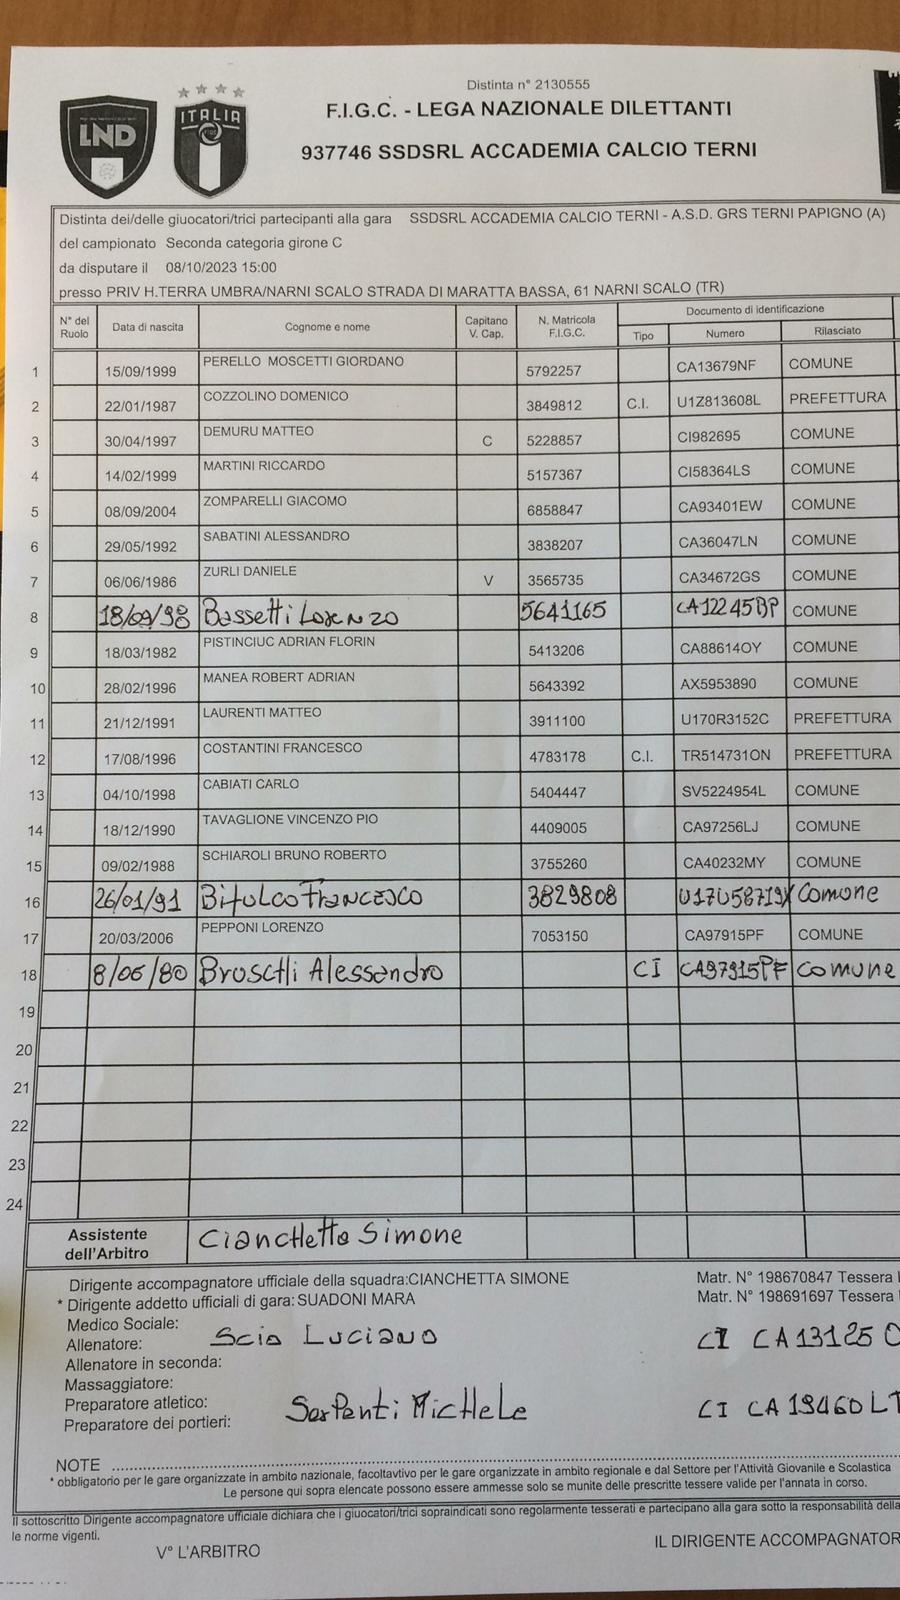 Distinta n° 2130555
F.I.G.C. - LEGA NAZIONALE DILETTANTI
937746 SSDSRL ACCADEMIA CALCIO TERNI
LND
ITALIA
FIGC
Distinta dei/delle giuocatori/trici partecipanti alla gara SSDSRL ACCADEMIA CALCIO TERNI - A.S.D. GRS TERNI PAPIGNO (A)
del campionato Seconda categoria girone C
da disputare il 08/10/2023 15:00
presso PRIV H.TERRA UMBRA/NARNI SCALO STRADA DI MARATTA BASSA, 61 NARNI SCALO (TR)
N° del Ruolo Data di nascita Cognome e nome Capitano V. Cap. N. Matricola F.I.G.C. Documento di identificazione
Tipo Numero Rilasciato
1 15/09/1999 PERELLO MOSCETTI GIORDANO 5792257 CA13679NF COMUNE
2 22/01/1987 COZZOLINO DOMENICO 3849812 C.I. U1Z813608L PREFETTURA
3 30/04/1997 DEMURU MATTEO C 5228857 CI982695 COMUNE
4 14/02/1999 MARTINI RICCARDO 5157367 CI58364LS COMUNE
5 08/09/2004 ZOMPARELLI GIACOMO 6858847 CA93401EW COMUNE
6 29/05/1992 SABATINI ALESSANDRO 3838207 CA36047LN COMUNE
7 06/06/1986 ZURLI DANIELE V 3565735 CA34672GS COMUNE
8 18/09/98 Bassetti Lorenzo 5641165 CA12245BP COMUNE
9 18/03/1982 PISTINCIUC ADRIAN FLORIN 5413206 CA88614OY COMUNE
10 28/02/1996 MANEA ROBERT ADRIAN 5643392 AX5953890 COMUNE
11 21/12/1991 LAURENTI MATTEO 3911100 U170R3152C PREFETTURA
12 17/08/1996 COSTANTINI FRANCESCO 4783178 C.I. TR514731ON PREFETTURA
13 04/10/1998 CABIATI CARLO 5404447 SV5224954L COMUNE
14 18/12/1990 TAVAGLIONE VINCENZO PIO 4409005 CA97256LJ COMUNE
15 09/02/1988 SCHIAROLI BRUNO ROBERTO 3755260 CA40232MY COMUNE
16 26/01/91 Bifulco Francesco 3829808 U17U58719X Comune
17 20/03/2006 PEPPONI LORENZO 7053150 CA97915PF COMUNE
18 8/06/80 Bruschi Alessandro CI CA97915PF Comune
19
20
21
22
23
24
Assistente dell'Arbitro Cianchetta Simone
Dirigente accompagnatore ufficiale della squadra:CIANCHETTA SIMONE Matr. N° 198670847 Tessera
* Dirigente addetto ufficiali di gara: SUADONI MARA Matr. N° 198691697 Tessera
Medico Sociale:
Allenatore: Scia Luciano CI CA13125
Allenatore in seconda:
Massaggiatore:
Preparatore atletico:
Preparatore dei portieri: Serpenti Michele CI CA19460LT
NOTE
* obbligatorio per le gare organizzate in ambito nazionale, facoltavtivo per le gare organizzate in ambito regionale e dal Settore per l'Attività Giovanile e Scolastica
Le persone qui sopra elencate possono essere ammesse solo se munite delle prescritte tessere valide per l'annata in corso.
Il sottoscritto Dirigente accompagnatore ufficiale dichiara che i giuocatori/trici sopraindicati sono regolarmente tesserati e partecipano alla gara sotto la responsabilità della
le norme vigenti.
V° L'ARBITRO IL DIRIGENTE ACCOMPAGNATOR